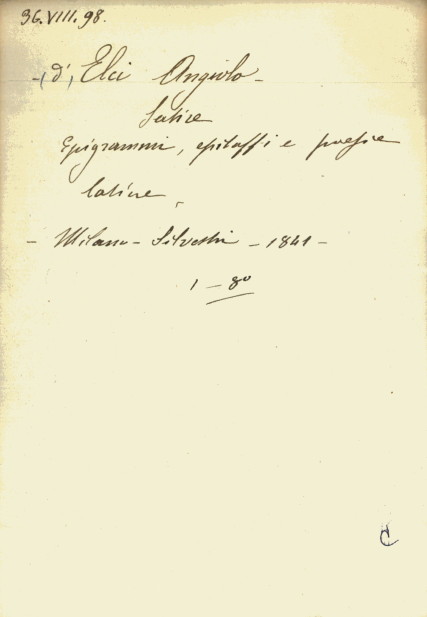 36.VIII.98.
- (d') Elci Angiolo -
Satire
Epigrammi, epitaffi e poesie
latine.
- Milano - Silvestri - 1841 -
1 - 8º
C